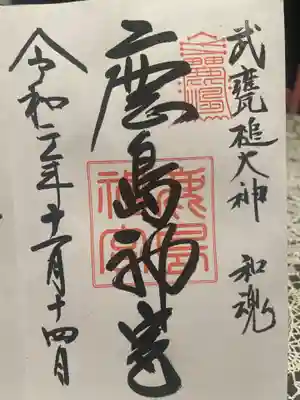 武甕槌大神 和魂
鹿島神宮
鹿島神宮
令和元年十一月十四日